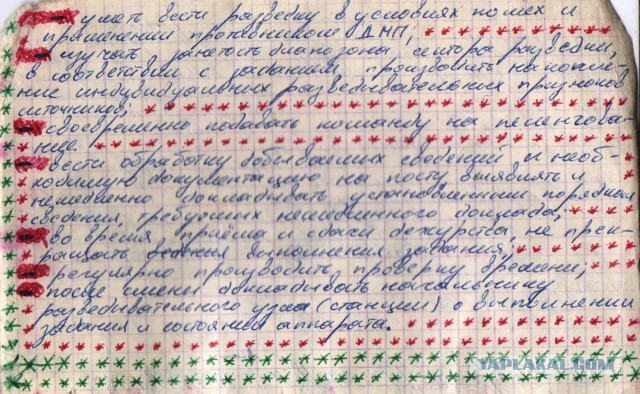 - уметь вести разведку в условиях помех и
применении противником ДМП;
- изучать занятость диапазона сектора разведки,
в соответствии с заданием производить накопле-
ние индивидуальных разведывательных признаков
источников;
- своевременно подавать команду на пеленгова-
ние
- вести обработку добываемых сведений и необ-
ходимую документацию на посту выявлять и
немедленно докладывать установленным порядком
сведения, требующих немедленного доклада;
- во время приёма и сдачи дежурства, не прек-
ращать ведения выполнения задания;
- регулярно производить проверку времени;
- после смены докладывать начальнику
разведывательного узла (станции) о выполнении
задания и состоянии аппарата.
YAPLAKAL.COM